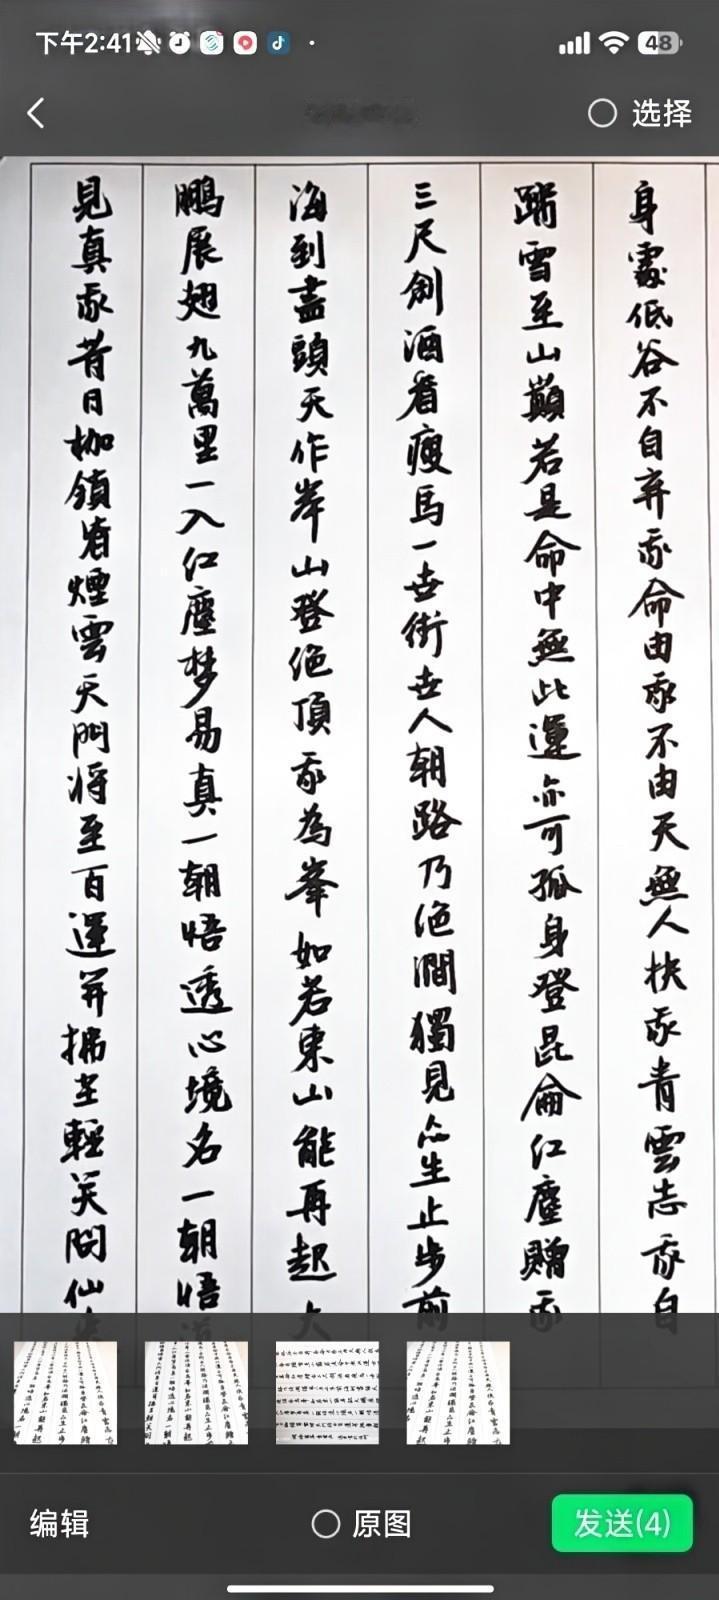 下午2:41
48
选择
身處低谷不自弃我命由我不由天無人扶我青雲志我自
踏雪至山巔若是命中無此運亦可孤身登昆侖红塵贈我
三尺劍酒看瘦馬一世街世人朝路乃绝澗獨見众生止步前
海到盡頭天作岸山登绝頂我為峯如若東山能再起大
鵬展翅九萬里一入红塵梦易真一朝悟透心境名一朝悟道
見真我昔日枷鎖皆煙雲天門將至百運開拂尘輕笑問仙
编辑
原图
发送(4)